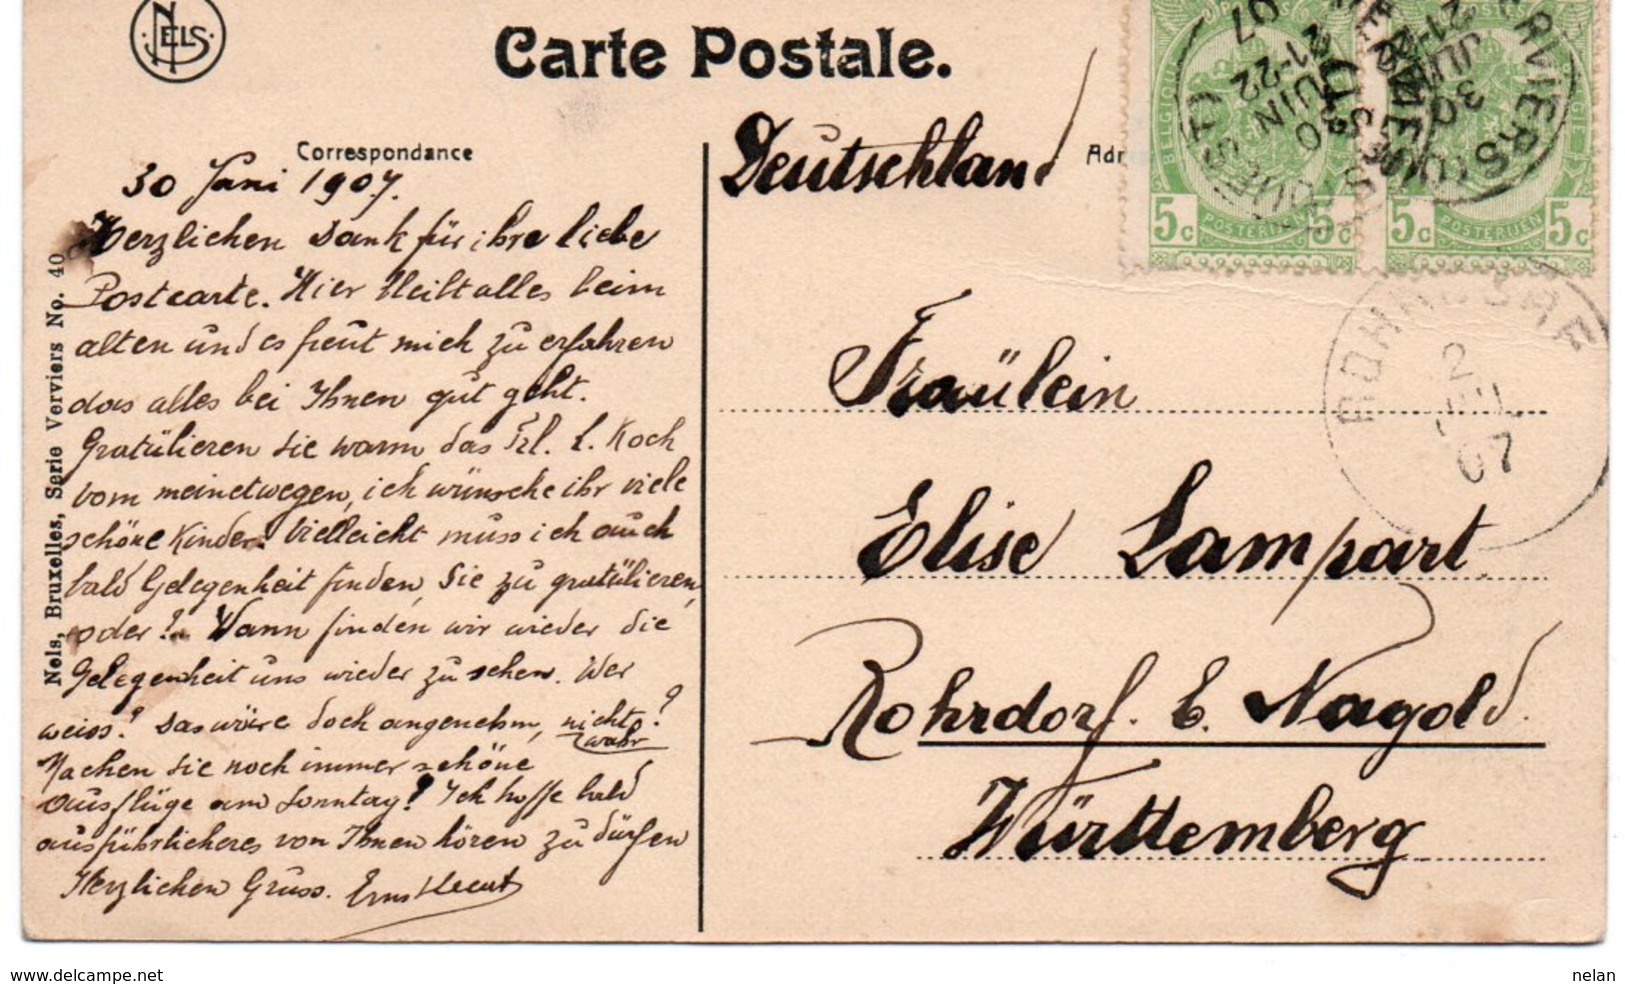 NELS
Carte Postale.
Correspondance
Nels, Bruxelles, Serie Verviers No. 40
30 Juni 1907.
Herzlichen Dank für ihre liebe
Postcarte. Hier bleibt alles beim
alten und es freut mich zu erfahren
das alles bei Ihnen gut geht.
Gratülieren Sie warm das Frl. L. Koch
vom meinetwegen, ich wünsche ihr viele
schöne Kinder. Vielleicht muss ich auch
bald Gelegenheit finden, Sie zu gratülieren,
oder? Wann finden wir wieder die
Gelegenheit uns wieder zu sehen. Wer
weiss? Das wäre doch angenehm, nicht?
wahr
Machen Sie noch immer schöne
Ausflüge am Sonntag? Ich hoffe bald
ausführlicheres von Ihnen hören zu dürfen
Herzlichen Gruss. Ernst
Deutschland
Adr
BELGIQUE
5c POSTERIJEN 5c
5c POSTERIJEN 5c
VERVIERS
21-22
30
JUIN
07
ROHRDORF
2
JUL
07
Fraülein
Elise Lampart
Rohrdorf. b. Nagold.
Württemberg
www.delcampe.net
nelan